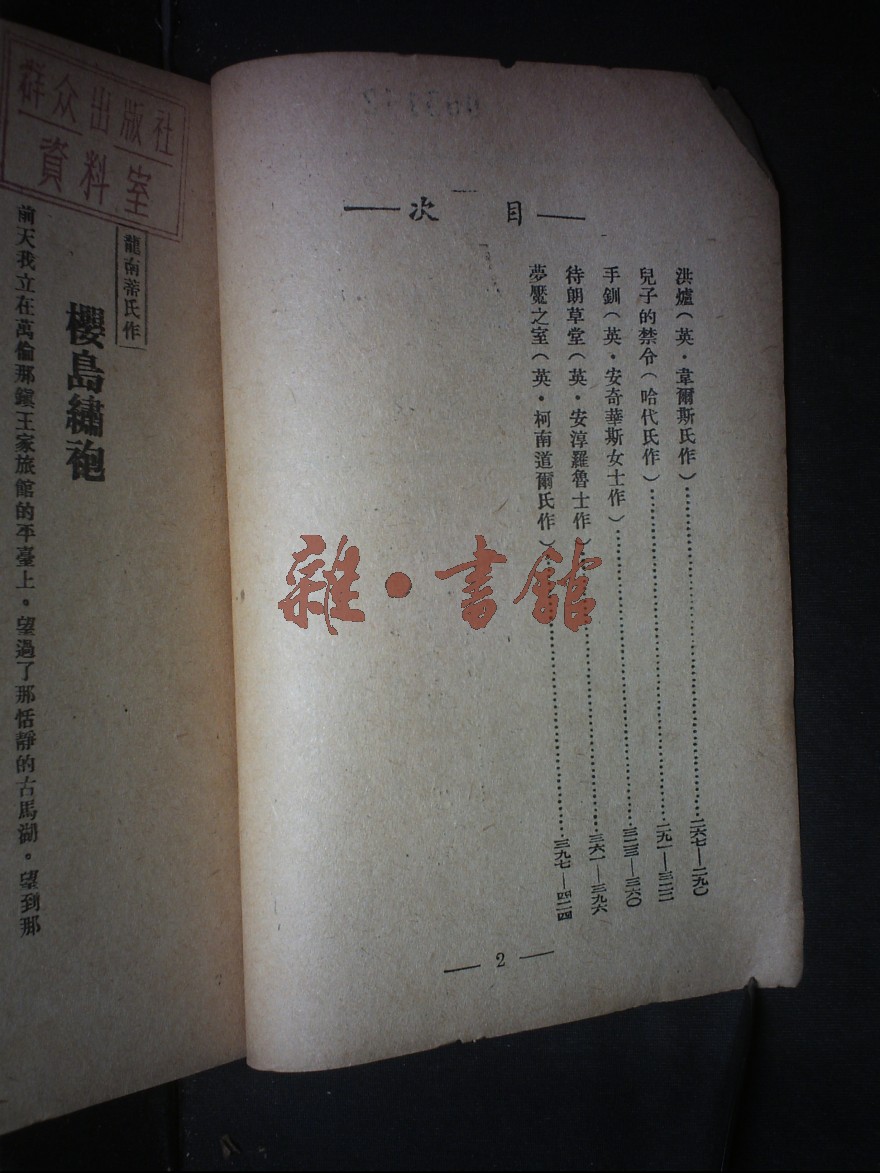 目次
洪爐（英・韋爾斯氏作）……二六七—二九〇
兒子的禁令（哈代氏作）……二九一—三二二
手釧（英・安奇華斯女士作）……三二三—三六〇
待朗草堂（英・安淳羅魯士作）……三六一—三九六
夢魘之室（英・柯南道爾氏作）……三九七—四二四
— 2 —
群众出版社
資料室
龍南蒂氏作
櫻島繡袍
前天我立在萬倫那鎭王家旅館的平臺上。望過了那恬靜的古馬湖。望到那
雜・書館